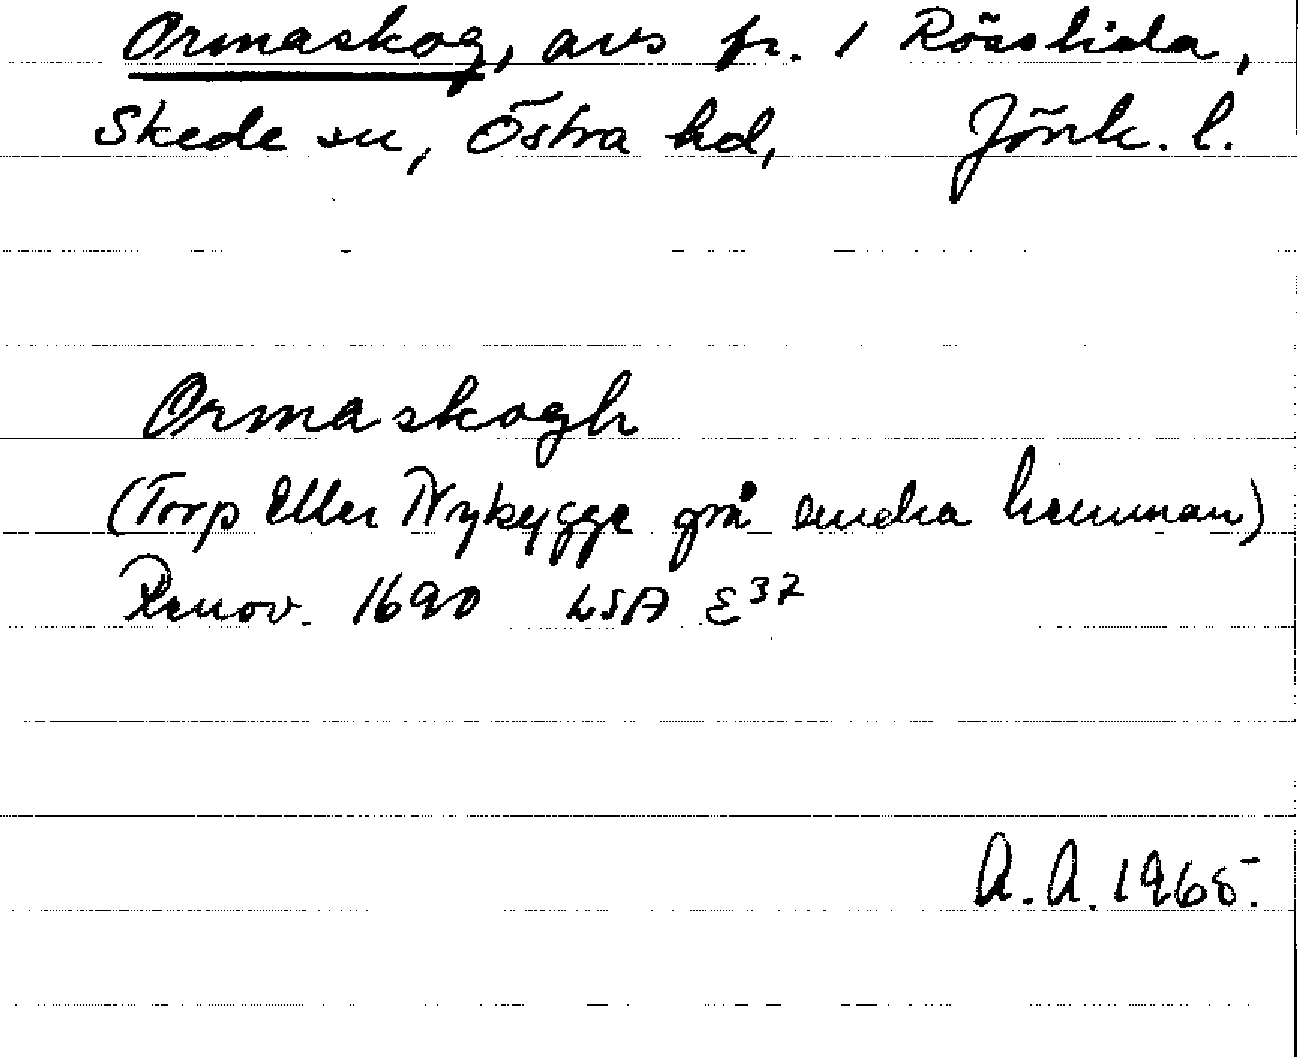 Ormaskog, avs fr. 1 Rösslida,
Skede sn, Östra hd, Jönk. l.
Ormaskogh
(Torp Eller Nybygge på andra hemman)
Renov. 1690 LSA E 37
A. A. 1965.